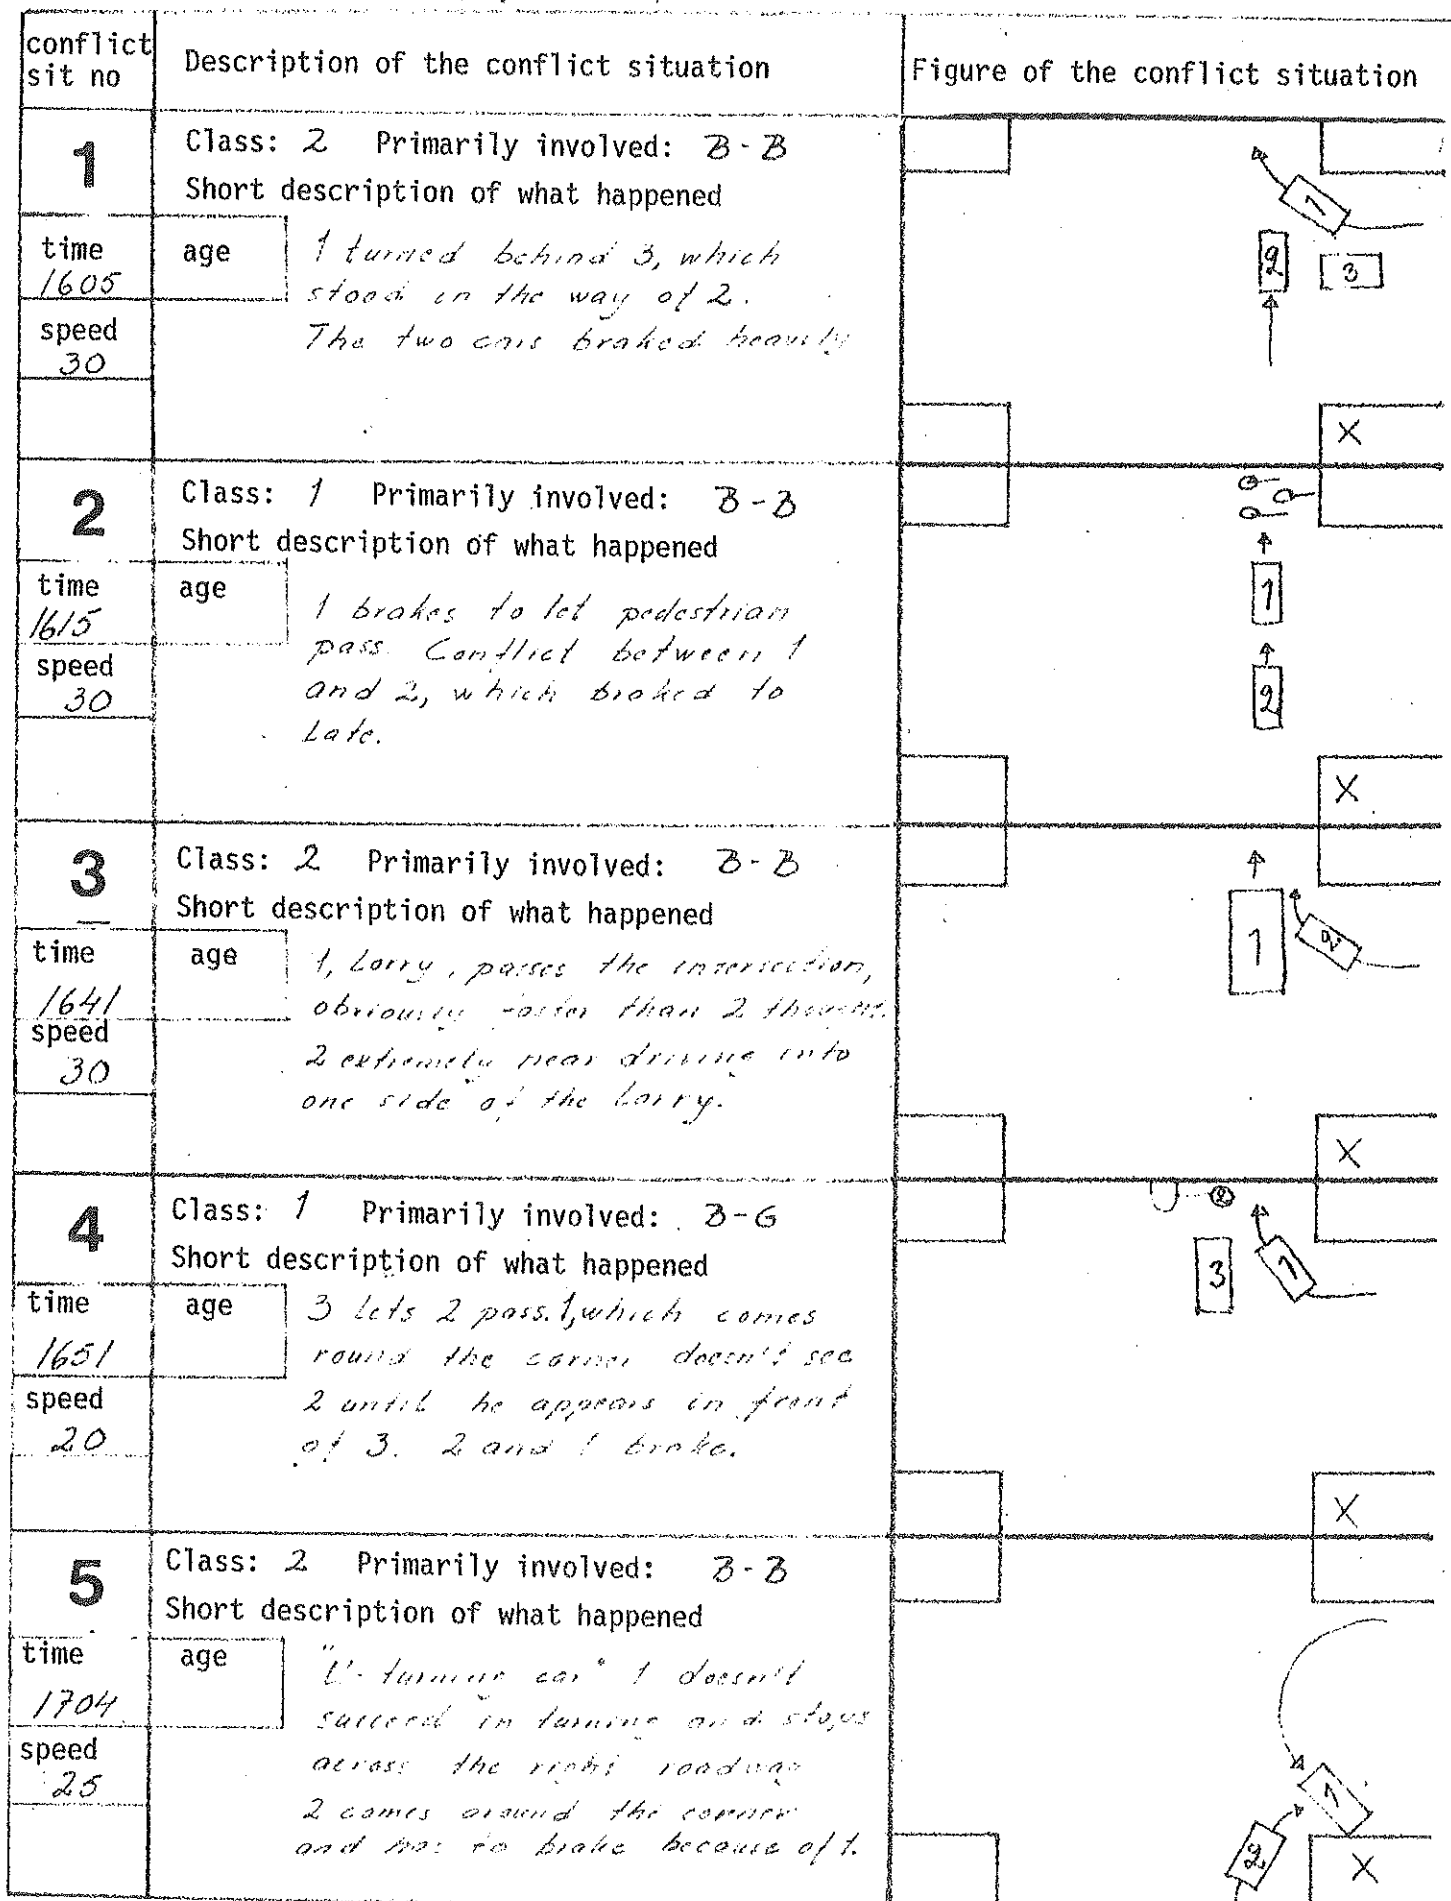 conflict sit no
Description of the conflict situation
Figure of the conflict situation
1
Class: 2 Primarily involved: B-B
Short description of what happened
time
1605
age
speed
30
1 turned behind 3, which
stood in the way of 2.
The two cars braked heavily
1
2
3
X
2
Class: 1 Primarily involved: B-B
Short description of what happened
time
1615
age
speed
30
1 brakes to let pedestrian
pass. Conflict between 1
and 2, which braked to
Late.
1
2
X
3
Class: 2 Primarily involved: B-B
Short description of what happened
time
1641
age
speed
30
1, Lorry, passes the intersection,
obviously faster than 2 thought.
2 extremely near driving into
one side of the Lorry.
1
2
X
4
Class: 1 Primarily involved: B-G
Short description of what happened
time
1651
age
speed
20
3 lets 2 pass. 1, which comes
round the corner doesn't see
2 until he appears in front
of 3. 2 and 1 brake.
2
3
1
X
5
Class: 2 Primarily involved: B-B
Short description of what happened
time
1704
age
speed
25
"U-turning car" 1 doesn't
succeed in turning and stops
across the right roadway
2 comes around the corner
and has to brake because of 1.
1
2
X